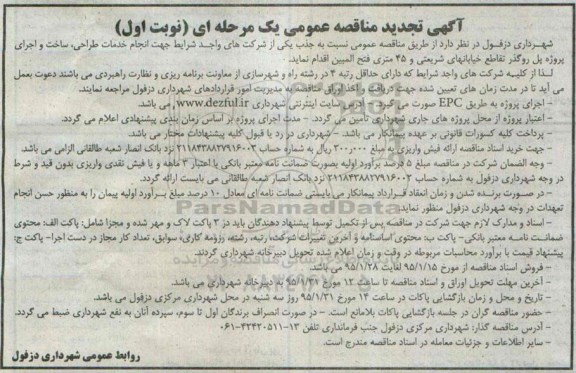 آگهی تجدید مناقصه عمومی یک مرحله ای (نوبت اول)
شهرداری دزفول در نظر دارد از طریق مناقصه عمومی نسبت به جذب یکی از شرکت های واجد شرایط جهت انجام خدمات طراحی، ساخت و اجرای
پروژه پل روگذر تقاطع خیابانهای شریعتی و ۴۵ متری فتح المبین اقدام نماید.
لذا از کلیه شرکت های واجد شرایط که دارای حداقل رتبه ۴ در رشته راه و شهرسازی از معاونت برنامه ریزی و نظارت راهبردی می باشند دعوت بعمل
می آید تا در مدت زمان های تعیین شده جهت دریافت و اخذ اوراق مناقصه به مدیریت امور قراردادهای شهرداری دزفول مراجعه نمایند.
- اجرای پروژه به طریق EPC صورت می گیرد. - آدرس سایت اینترنتی شهرداری www.dezful.ir می باشد.
- اعتبار پروژه از محل پروژه های جاری شهرداری تأمین می گردد. - مدت اجرای پروژه بر اساس زمان بندی پیشنهادی اعلام می گردد.
- پرداخت کلیه کسورات قانونی بر عهده پیمانکار می باشد. - شهرداری در رد یا قبول کلیه پیشنهادات مختار می باشد.
- جهت خرید اسناد مناقصه ارائه فیش واریزی به مبلغ ۳۰۰٫۰۰۰ ریال به شماره حساب ۲۱۱۸۴۳۸۸۲۷۹۱۶۰۰۲ نزد بانک انصار شعبه طالقانی الزامی می باشد.
- وجه الضمان شرکت در مناقصه مبلغ ۵ درصد برآورد اولیه بصورت ضمانت نامه معتبر بانکی با اعتبار ۳ ماهه و یا فیش نقدی واریزی بدون قید و شرط
در وجه شهرداری دزفول به شماره حساب ۲۱۱۸۴۳۸۸۲۷۹۱۶۰۰۳ نزد بانک انصار شعبه طالقانی می بایست ارائه گردد.
- در صورت برنده شدن و زمان انعقاد قرارداد پیمانکار می بایستی ضمانت نامه ای معادل ۱۰ درصد مبلغ برآورد اولیه پیمان را به منظور حسن انجام
تعهدات در وجه شهرداری دزفول منظور نماید.
- اسناد و مدارک لازم جهت شرکت در مناقصه پس از تکمیل توسط پیشنهاد دهندگان باید در ۳ پاکت لاک و مهر شده و مجزا شامل: پاکت الف: محتوی
ضمانت نامه معتبر بانکی- پاکت ب: محتوی اساسنامه و آخرین تغییرات شرکت، رتبه، رشته، رزومه کاری، سوابق، تعداد کار مجاز در دست اجرا- پاکت ج:
پیشنهاد قیمت با برآورد محاسبات مربوطه در وقت و زمان اعلام شده تحویل دبیرخانه شهرداری گردند.
- فروش اسناد مناقصه از مورخ ۹۵/۱/۱۵ لغایت ۹۵/۱/۲۸ می باشد.
- آخرین مهلت تحویل اوراق و اسناد مناقصه تا ساعت ۱۲ مورخ ۹۵/۱/۳۱ به دبیرخانه شهرداری می باشد.
- تاریخ و محل و زمان بازگشایی پاکات در ساعت ۱۴ مورخ ۹۵/۱/۳۱ روز سه شنبه در محل شهرداری مرکزی دزفول می باشد.
- حضور مناقصه گران در جلسه بازگشایی پاکات بلامانع است. - در صورت انصراف برندگان اول تا سوم، سپرده آنان به نفع شهرداری ضبط می گردد.
- آدرس مناقصه گذار: شهرداری مرکزی دزفول جنب فرمانداری تلفن ۱۳-۴۲۴۲۰۵۱۱-۰۶۱
- سایر اطلاعات و جزئیات معامله در اسناد مناقصه مندرج است.
روابط عمومی شهرداری دزفول
ParsNamadData